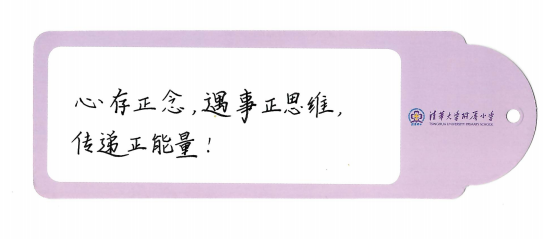 心存正念,遇事正思维,
传递正能量!
清华大学附属小学
TSINGHUA UNIVERSITY PRIMARY SCHOOL